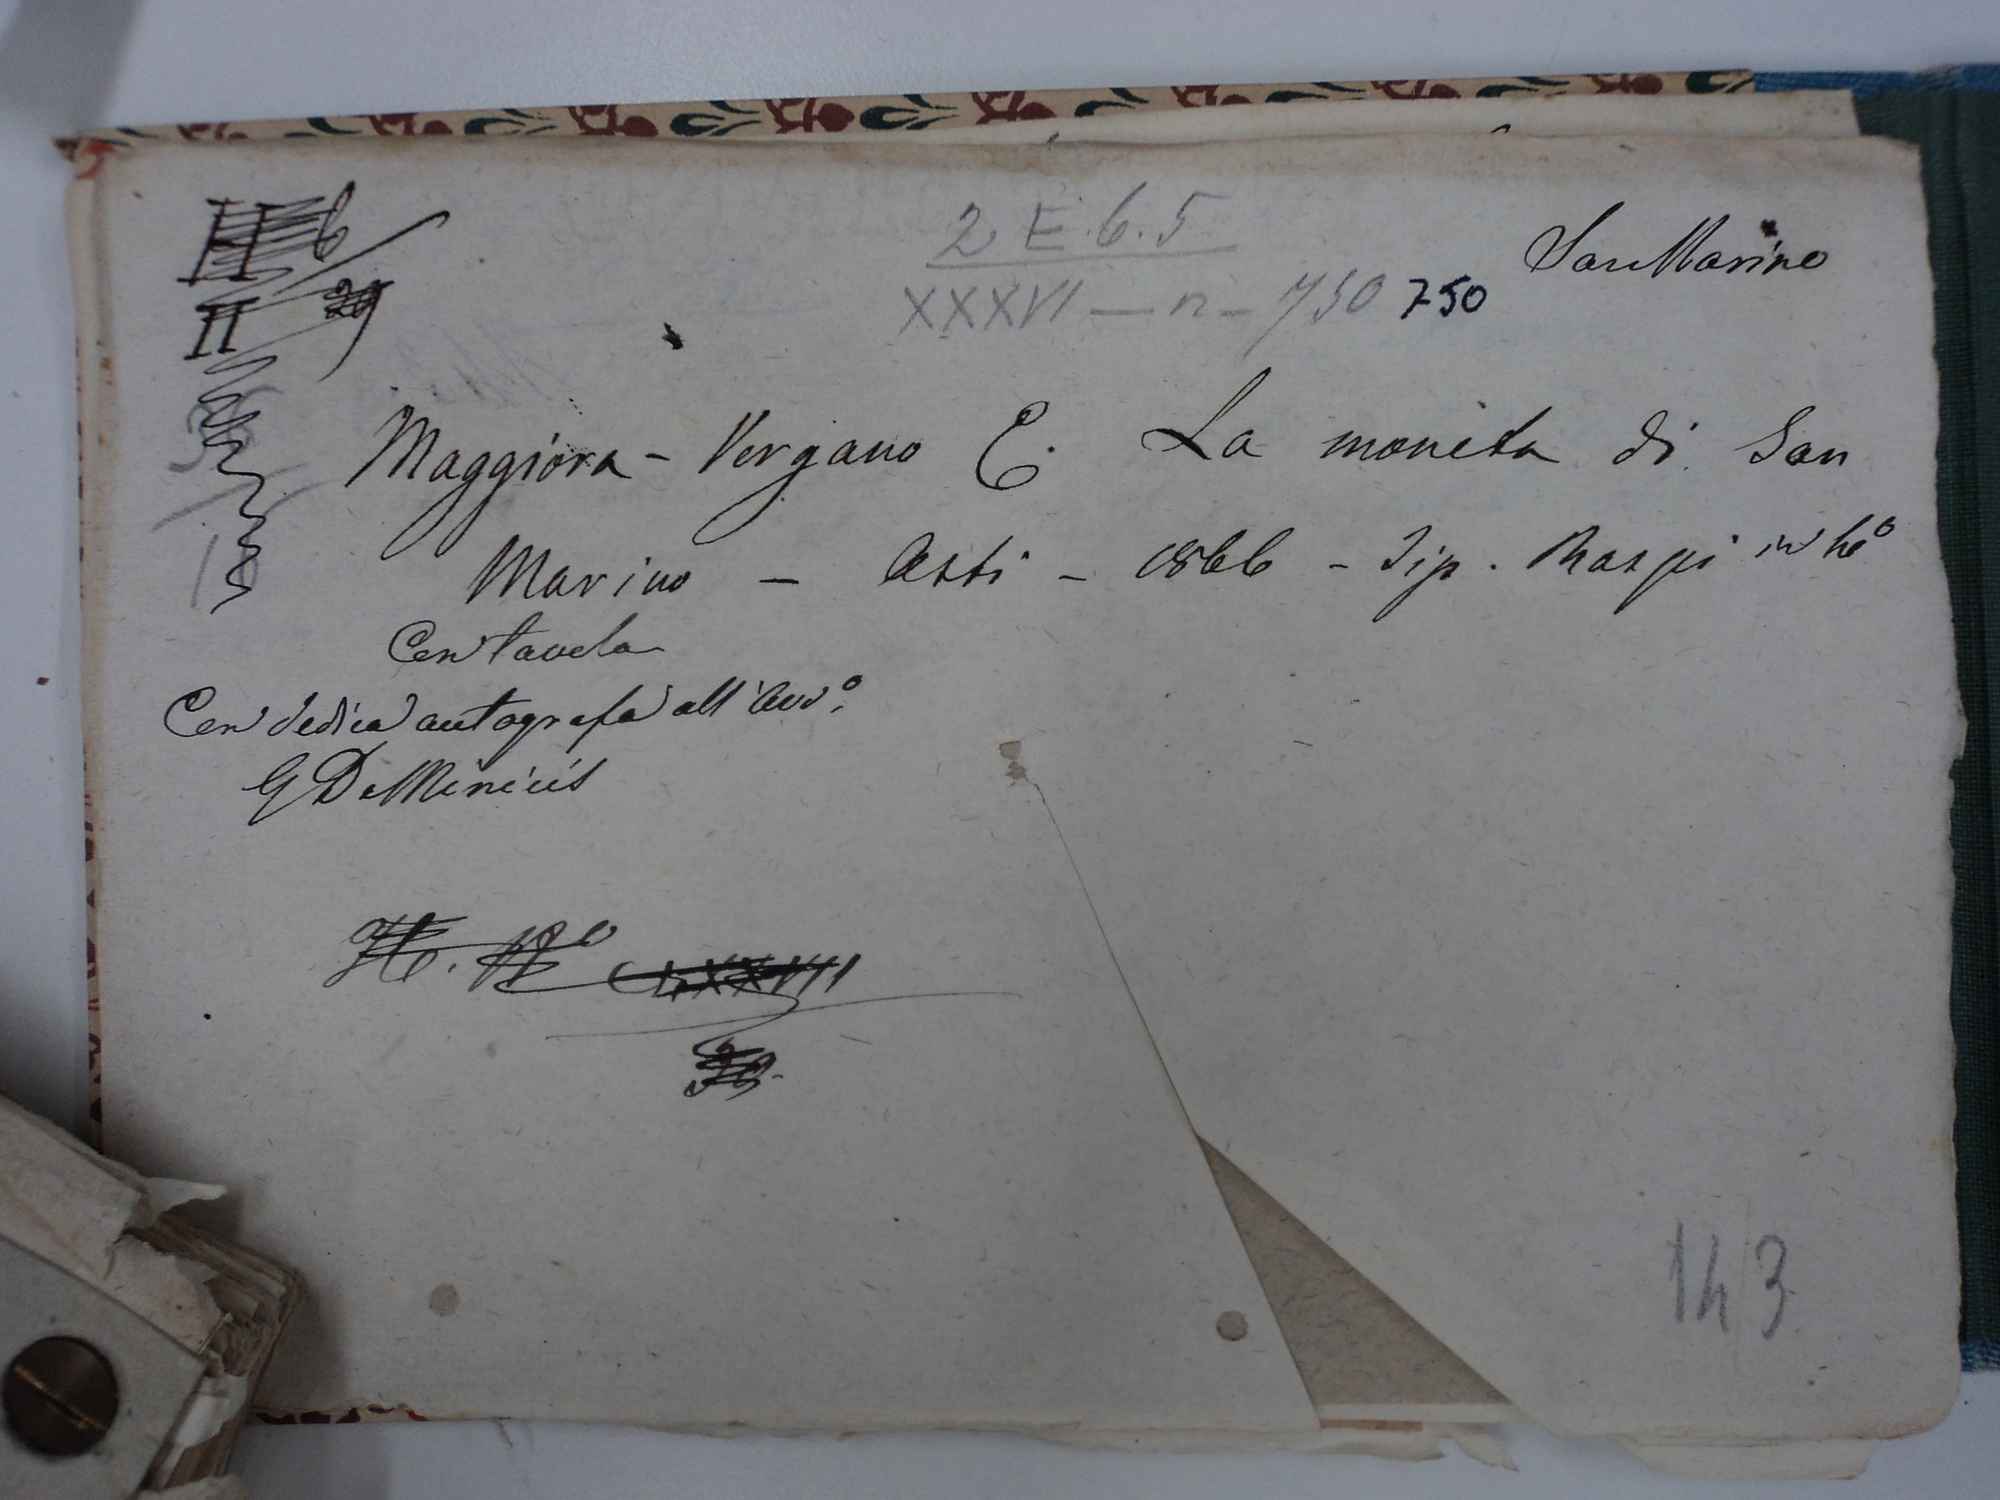 2 E. 6. 5
San Marino
XXXVI — n - 750 750
Maggiora - Vergano E. La moneta di San
Marino - Asti - 1866 - Tip. Raspi in 16º
Con tavola
Con dedica autografa all'Avv.º
G De Minicis
143